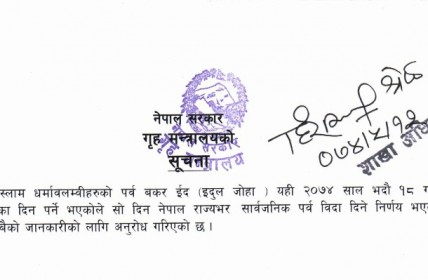 नेपाल सरकार
गृह मन्त्रालयको
सूचना
०७४/५/१९
शाखा अधि
स्लाम धर्मावलम्बीहरुको पर्व बकर ईद (इदुल जोहा ) यही २०७४ साल भदौ १८ ग
का दिन पर्ने भएकोले सो दिन नेपाल राज्यभर सार्वजनिक पर्व विदा दिने निर्णय भए
बैको जानकारीको लागि अनुरोध गरिएको छ ।